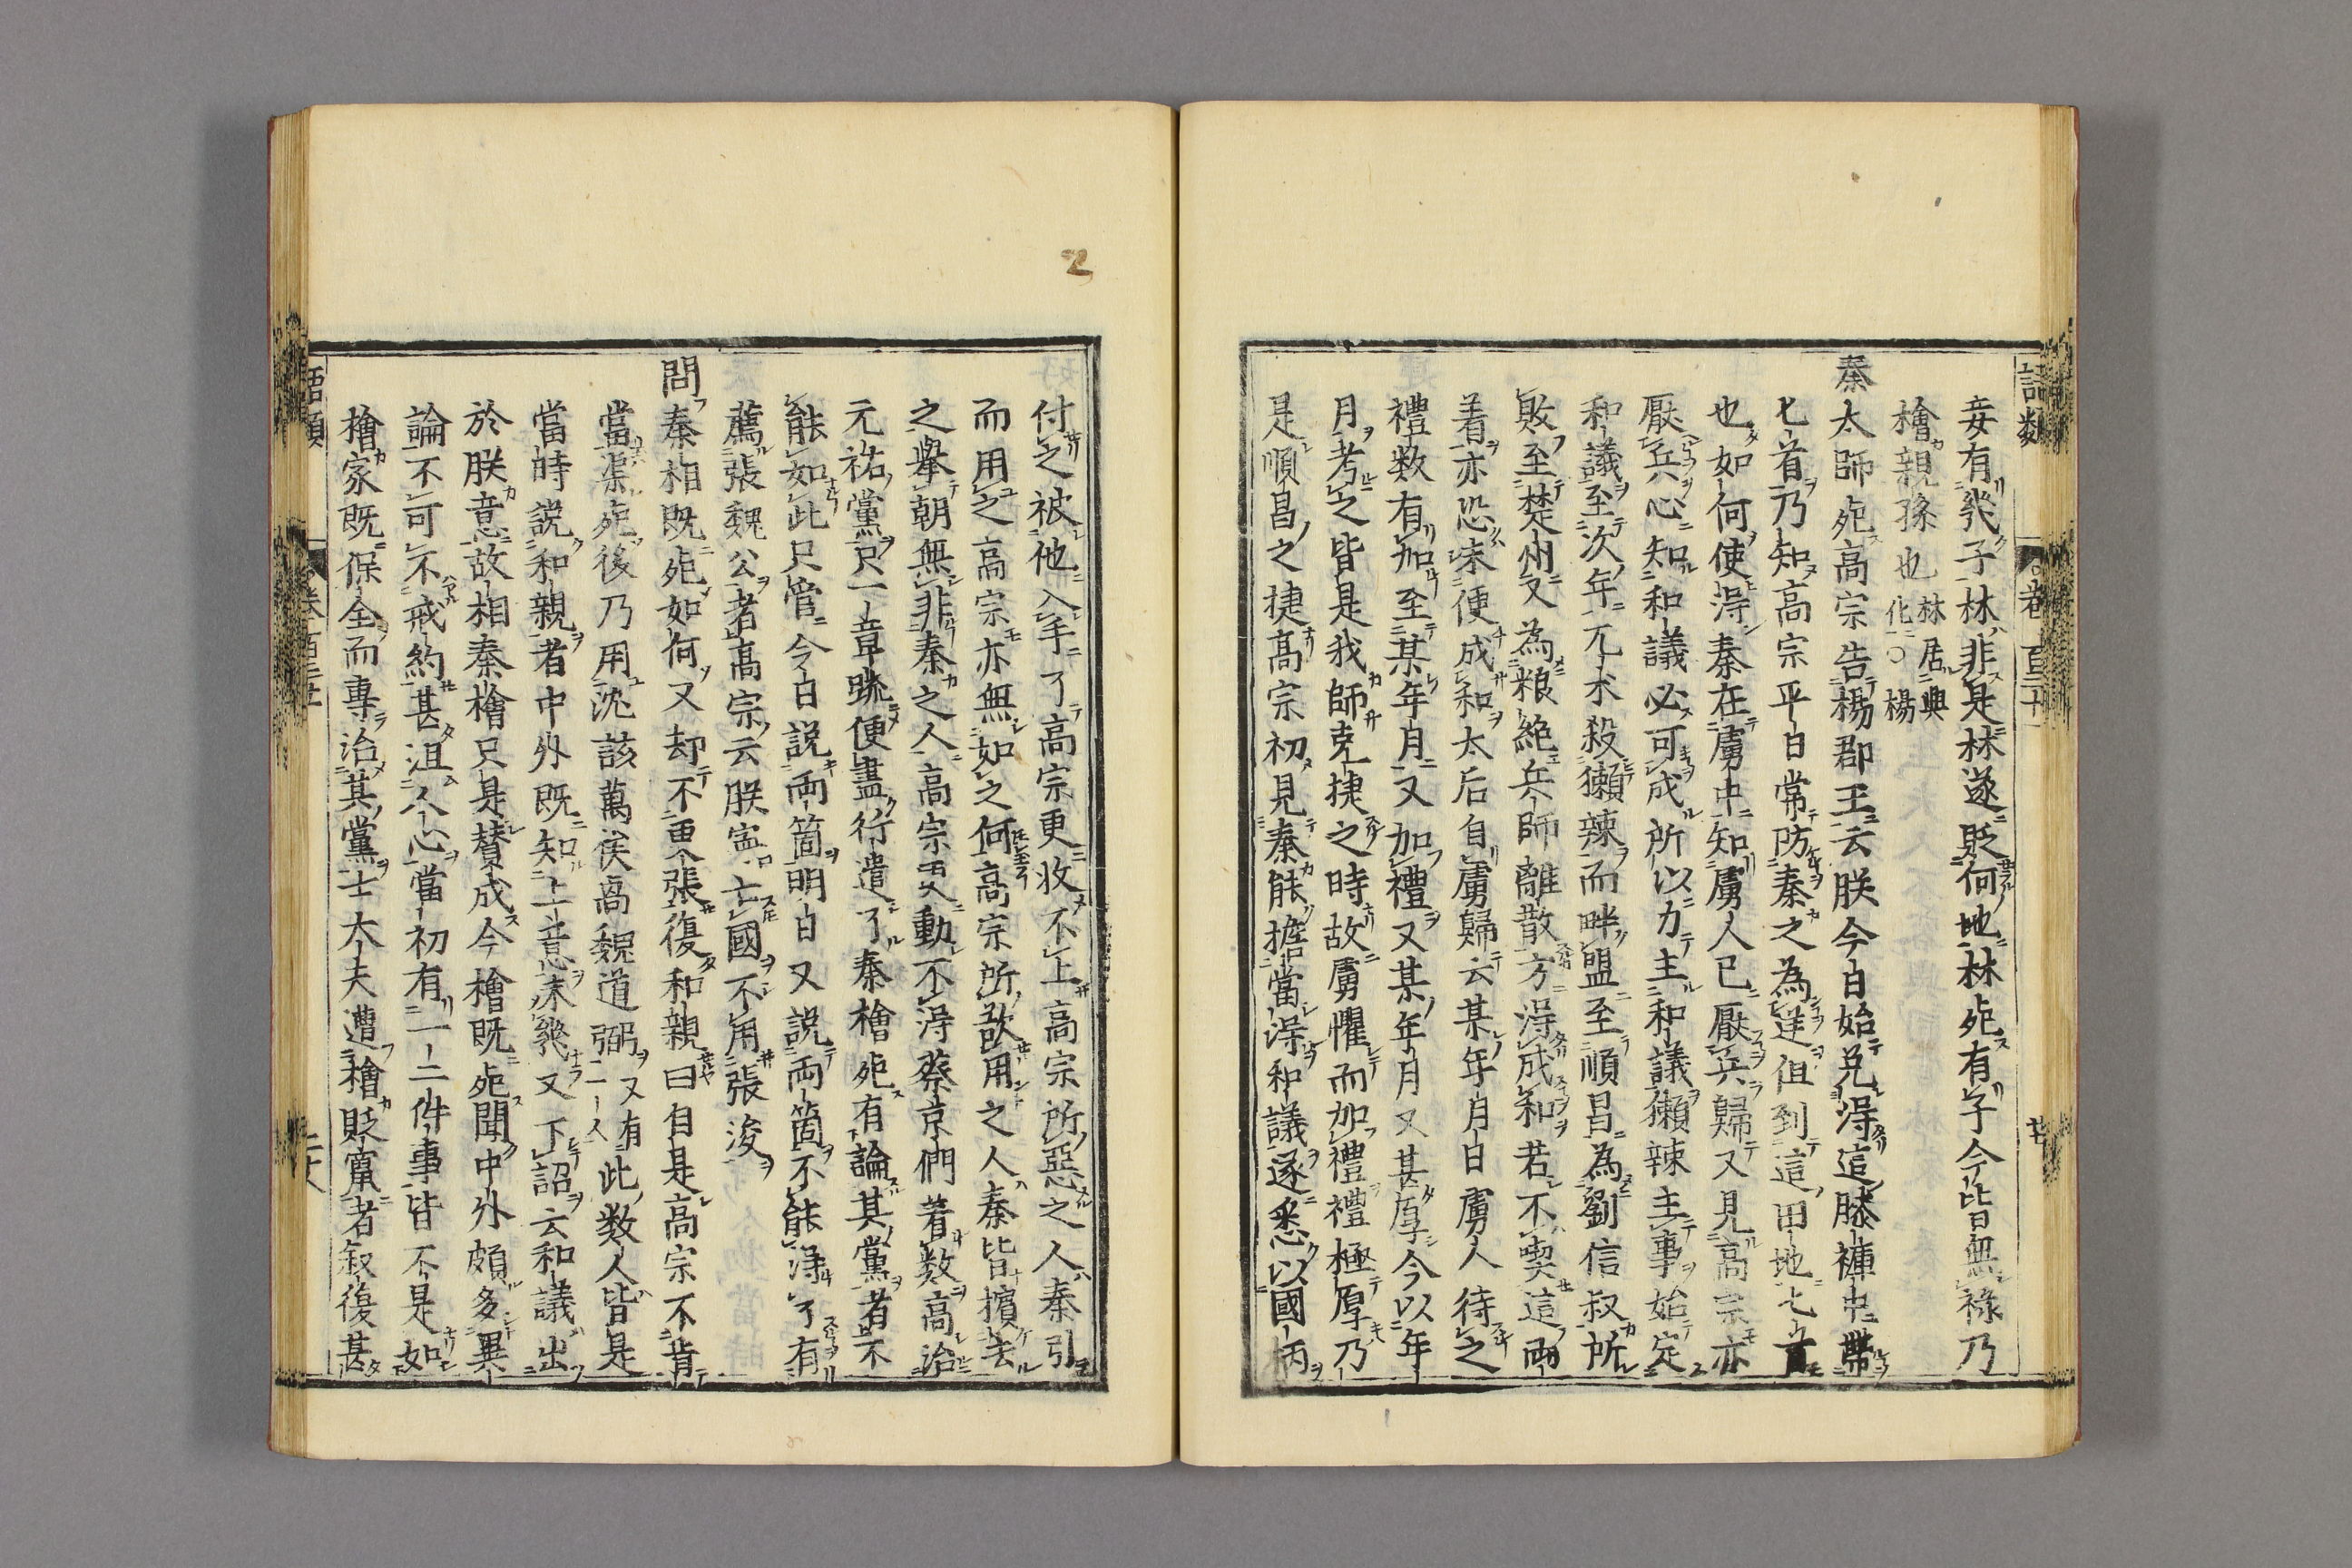 語類 卷百三十一
妾有幾子林非是林遂貶何地林死有子今皆無祿乃
檜親孫也林居興化○楊
秦太師死高宗告楊郡王云朕今日始免得這膝褲中帶
匕首乃知高宗平日常防秦之為逆但到這田地七首
也如何使得秦在虜中知虜人已厭兵歸又見高宗亦
厭兵心知和議必可成所以力主和議獺辣主事始定
和議至次年兀朮殺獺辣而畔盟至順昌為劉信叔所
敗至楚州又為粮絶兵師離散方得成和若不喫這兩
着亦恐未便成和太后自虜歸云某年月日虜人待之
禮数有加至某年月又加禮又某年月又甚厚今以年
月考之皆是我師克捷之時故虜懼而加禮禮極厚乃
是順昌之捷高宗初見秦能擔當得和議遂悉以國柄
付之被他入手了高宗更收不上高宗所惡之人秦引
而用之高宗亦無如之何高宗所欲用之人秦皆擯去
之舉朝無非秦之人高宗更動不得蔡京們着数高治
元祐黨只一章疏便盡行遣了秦檜死有論其黨者不
能如此只管今日說兩箇明日又說兩箇不能得了有
薦張魏公者高宗云朕寧亡國不用張浚
問秦相既死如何又却不更張復和親曰自是高宗不肯
當渠死後乃用沈該萬俟卨魏道弼又有二人此数人皆是
當時說和親者中外既知上意未幾又下詔云和議出
於朕意故相秦檜只是賛成今檜既死聞中外頗多異
論不可不戒約甚沮人心當初有一二件事皆不是如
檜家既保全而專治其黨士大夫遭檜貶竄者叙復甚
語類